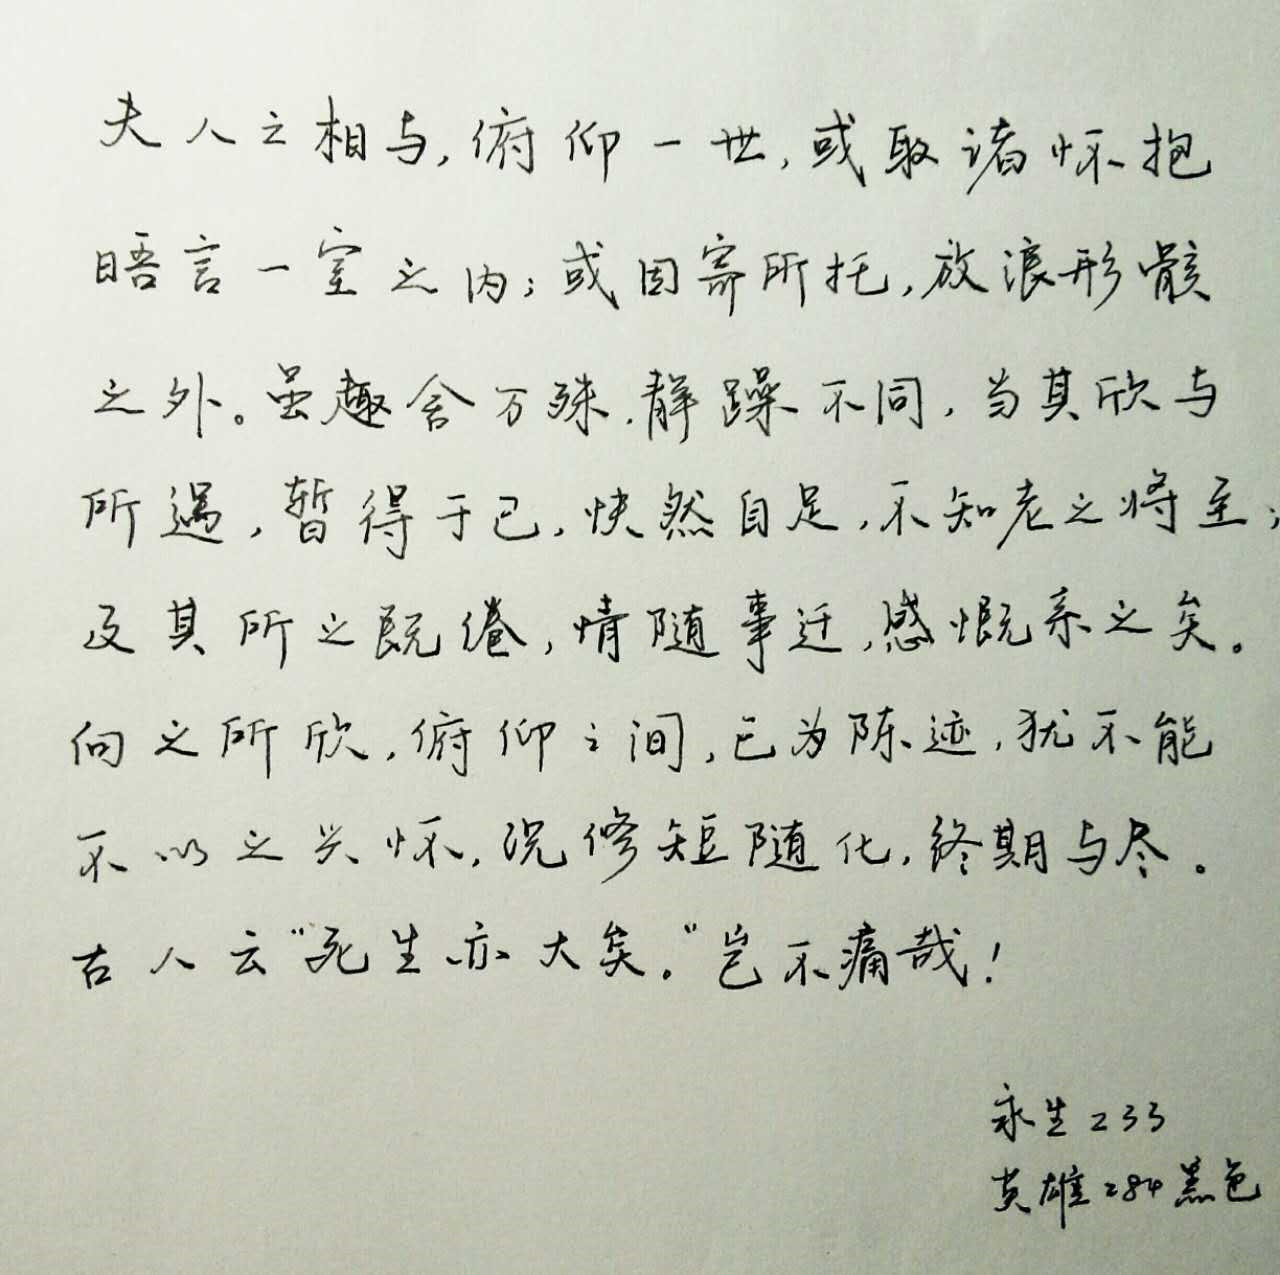 夫人之相与,俯仰一世,或取诸怀抱
晤言一室之内;或因寄所托,放浪形骸
之外。虽趣舍万殊,静躁不同,当其欣与
所遇,暂得于己,快然自足,不知老之将至;
及其所之既倦,情随事迁,感慨系之矣。
向之所欣,俯仰之间,已为陈迹,犹不能
不以之兴怀,况修短随化,终期与尽。
古人云“死生亦大矣。”岂不痛哉!
永生233
英雄284黑色